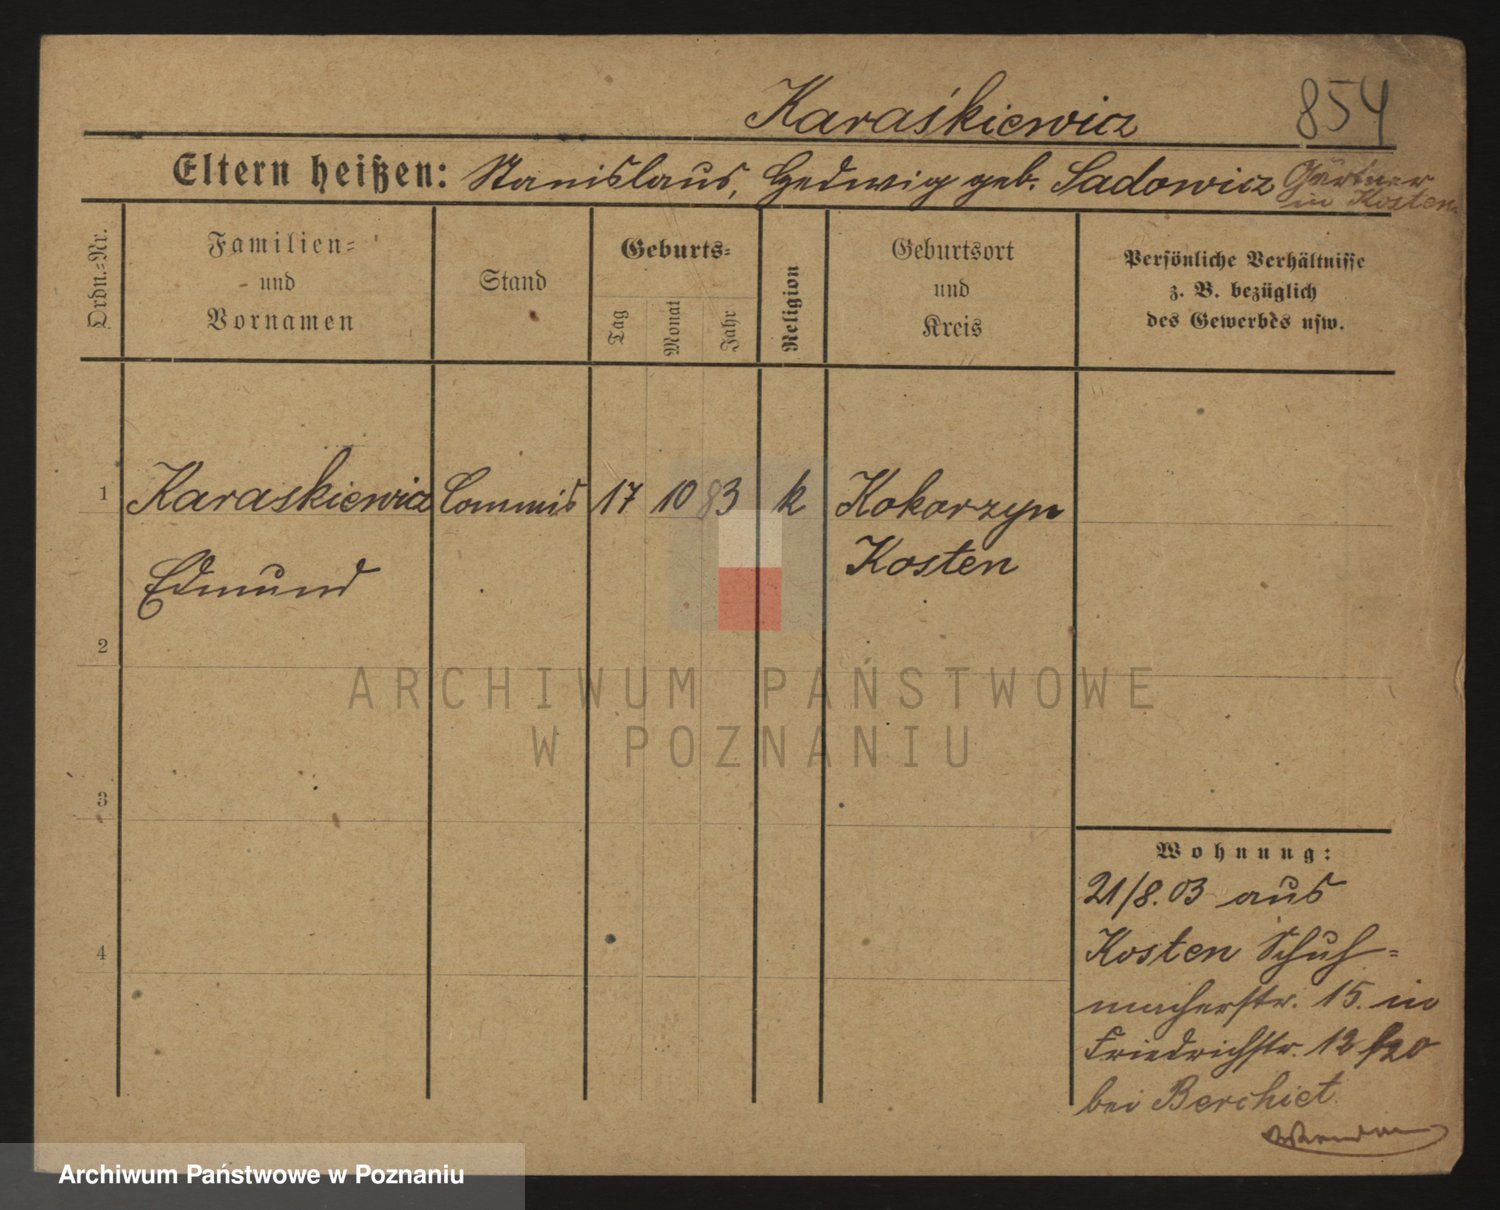 Karaśkiewicz
854
Eltern heißen: Stanislaus, Hedwig geb. Sadowicz Gärtner
in Kosten
Ordn.-Nr.
Familien-
und
Vornamen
Stand
Geburts-
Tag
Monat
Jahr
Religion
Geburtsort
und
Kreis
Persönliche Verhältnisse
z. B. bezüglich
des Gewerbes usw.
1 Karaskiewicz Commis 17 10 83 k Kokorzyn
Kosten
Edmund
2
3
4
Wohnung:
21/8.03 aus
Kosten Schuh-
macherstr. 15. in
Friedrichstr. 12
bei Berchiet
ARCHIWUM PAŃSTWOWE
W POZNANIU
Archiwum Państwowe w Poznaniu